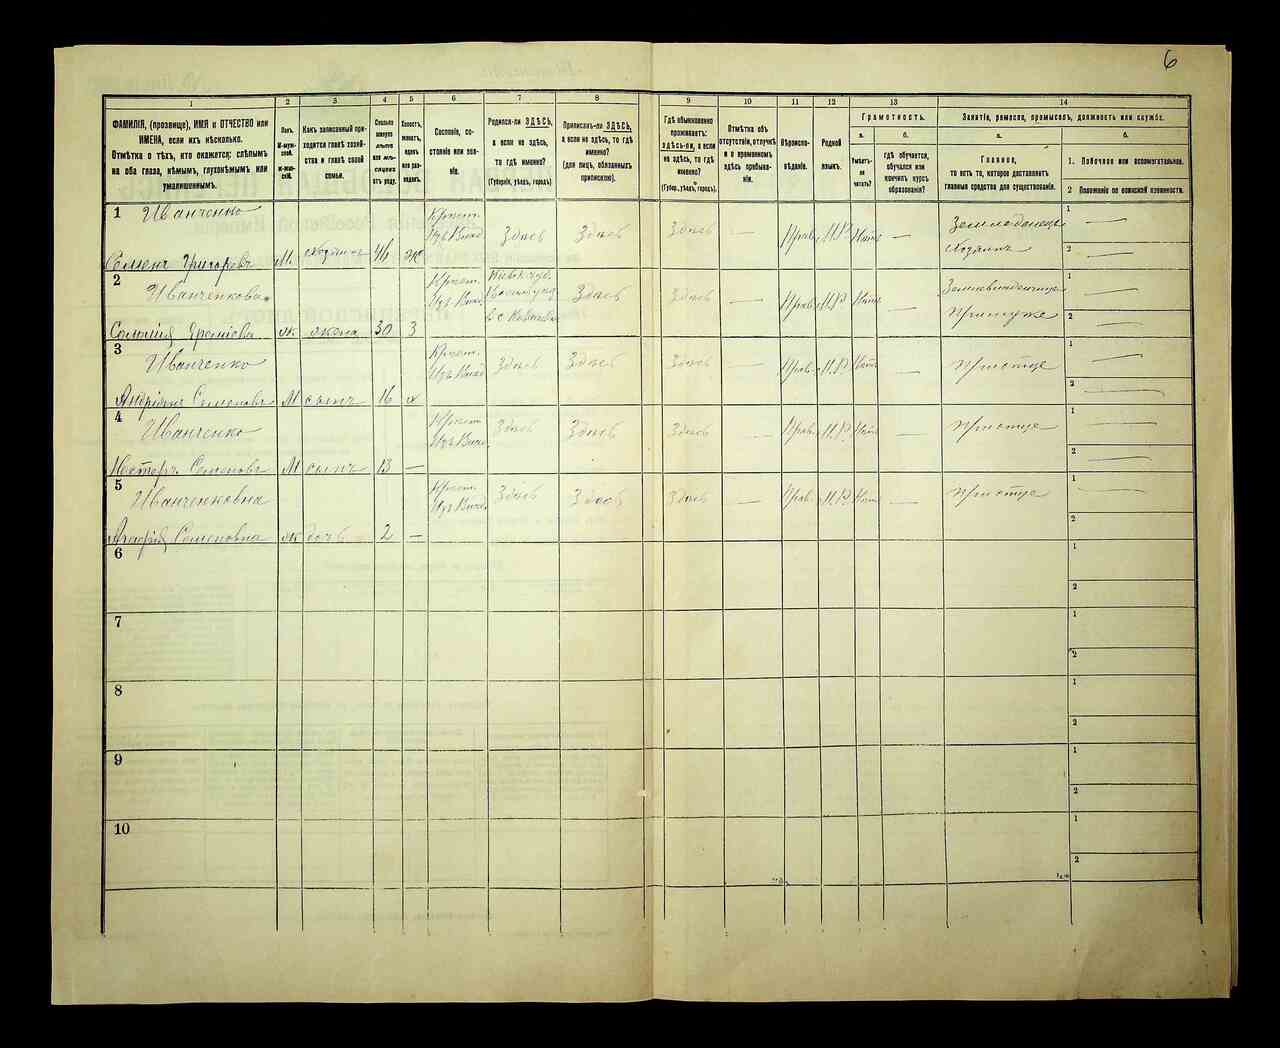 6
1
2
3
4
5
6
7
8
9
10
11
12
13
14
ФАМИЛІЯ, (прозвище), ИМЯ и ОТЧЕСТВО или
ИМЕНА, если ихъ нѣсколько.
Отмѣтка о тѣхъ, кто окажется: слѣпымъ
на оба глаза, нѣмымъ, глухонѣмымъ или
умалишеннымъ.
Полъ.
М-муж-
ской.
Ж-жен-
скій.
Какъ записанный при-
ходится главѣ хозяй-
ства и главѣ своей
семьи.
Сколько
минуло
лѣтъ
или мѣ-
сяцевъ
отъ роду.
Холостъ,
женатъ,
вдовъ
или раз-
веденъ.
Сословіе, со-
стояніе или зва-
ніе.
Родился-ли ЗДѢСЬ,
а если не здѣсь,
то гдѣ именно?
(Губернія, уѣздъ, городъ).
Приписанъ-ли ЗДѢСЬ,
а если не здѣсь, то гдѣ
именно?
(для лицъ, обязанныхъ
припискою).
Гдѣ обыкновенно
проживаетъ:
здѣсь-ли, а если
не здѣсь, то гдѣ
именно?
(Губер., уѣздъ, городъ).
Отмѣтка объ
отсутствіи, отлучкѣ
и о временномъ
здѣсь пребыва-
ніи.
Вѣроиспо-
вѣданіе.
Родной
языкъ.
Грамотность.
а.
б.
Умѣетъ-
ли
читать?
гдѣ обучается,
обучался или
кончилъ курсъ
образованія?
Занятіе, ремесло, промыселъ, должность или служба.
а.
б.
Главное,
то есть то, которое доставляетъ
главныя средства для существованія.
1. Побочное или вспомогательное.
2 Положеніе по воинской повинности.
1 Иванченко
Семенъ Григоревъ М. хозяинъ 46 ж
Крест.
Здѣсь Здѣсь Здѣсь — Прав. М.Р. —
Земледѣлецъ
Хозяинъ
1 —
2 —
2 Иванченкова
жена 30 З
Крест.
Здѣсь Здѣсь — Прав. М.Р. —
При мужѣ
1 —
2 —
3 Иванченко
Семеновъ М сынъ 16 х
Крест.
Здѣсь Здѣсь Здѣсь — Прав. М.Р. —
При отцѣ
1 —
2 —
4 Иванченко
Несторъ Семеновъ М сынъ 13 —
Крест.
Здѣсь Здѣсь Здѣсь — Прав. М.Р. —
При отцѣ
1 —
2 —
5 Иванченковна
Семеновна ж дочь 2 —
Крест.
Здѣсь Здѣсь Здѣсь — Прав. М.Р. —
При отцѣ
1 —
2
6
1
2
7
1
2
8
1
2
9
1
2
10
1
2